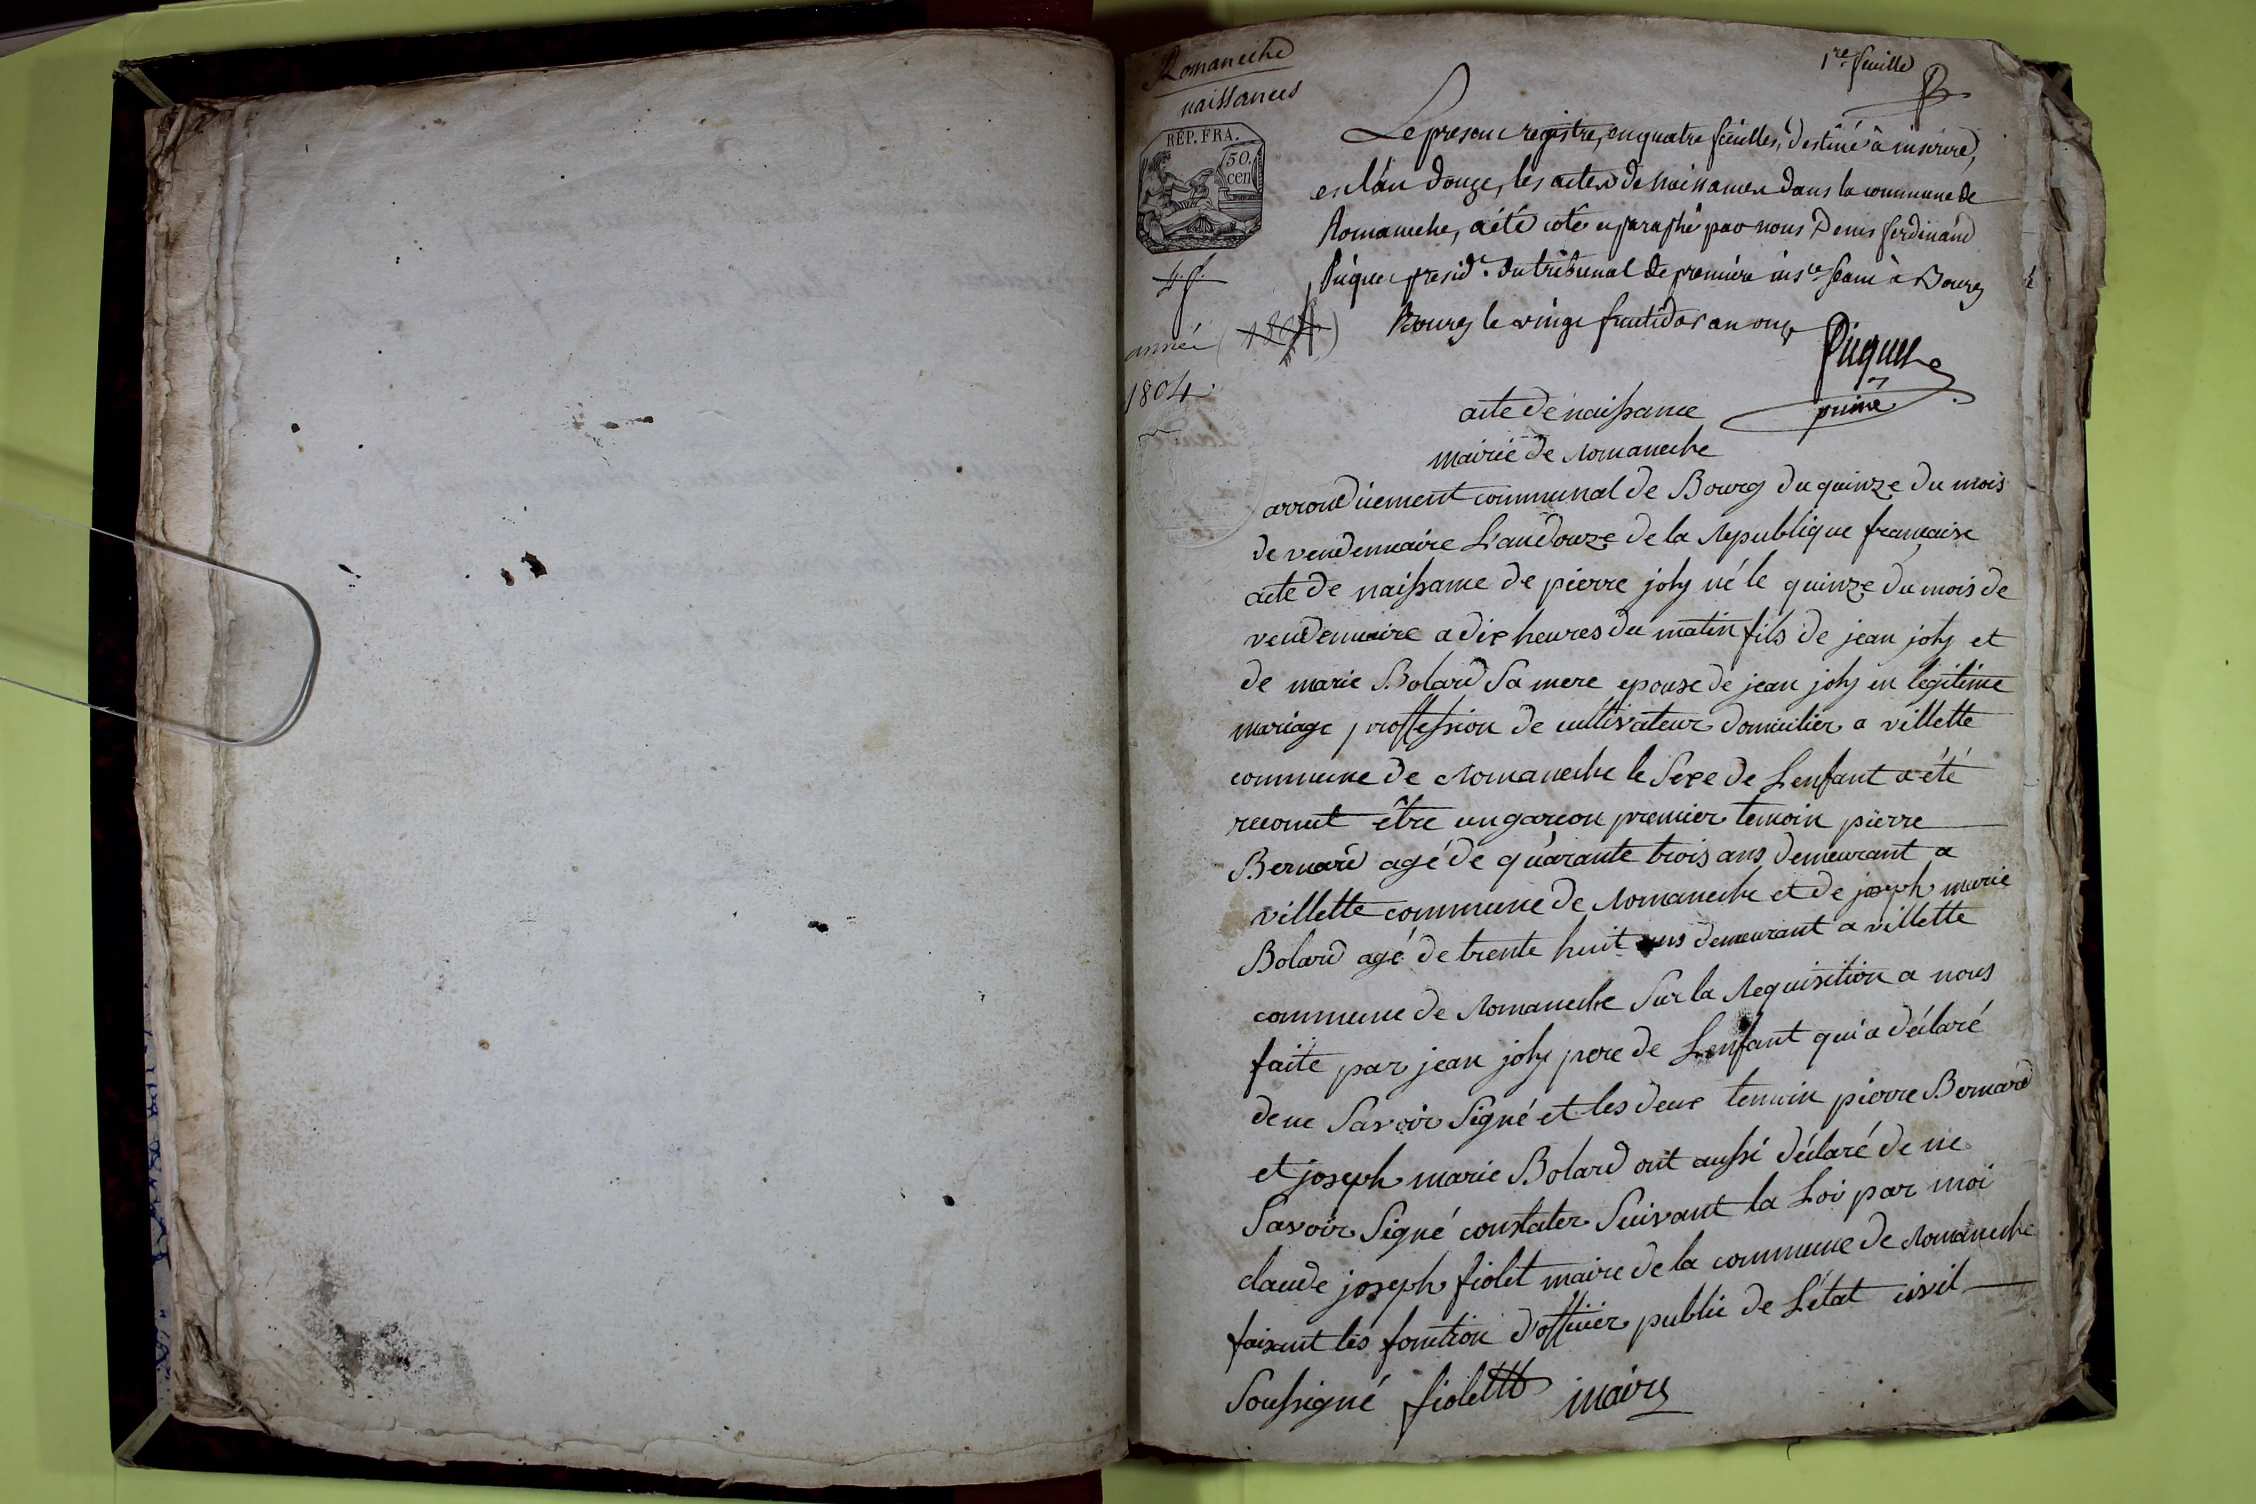 Romaneche
naissances
1re feuille
REP. FRA.
50.
cen
4. f.
année (1804)
1804
Le present registre, en quatre feuilles, destiné à inscrire,
en l'an douze, les actes de naissances dans la commune de
Romaneche, a été coté et paraphé par nous Denis ferdinand
Piquet presidt. du tribunal de première insce. séant à Bourg
Bourg le vingt fructidor an onze
Piquet
acte de naissance
mairie de Romaneche
arrondicement communal de Bourg du quinze du mois
de vendemiaire L'an douze de la Republique francaise
acte de naissance de pierre joly né le quinze du mois de
vendemiaire a dix heures du matin fils de jean joly et
de marie Bolard Sa mere epouse de jean joly en legitime
mariage proffession de cultivateur domicilier a villette
commune de Romaneche le Sexe de Lenfant a été
reconut être un garcon premier temoin pierre
Bernard agé de quarante trois ans demeurant a
villette commune de Romaneche et de joseph marie
Bolard agé de trente huit ans demeurant a villette
commune de Romaneche Sur la Requisition a nous
faite par jean joly pere de Lenfant qui a déclaré
de ne Savoir Signé et les deux temoin pierre Bernard
et joseph marie Bolard ont aussi déclaré de ne
Savoir Signé constater Suivant la Loi par moi
claude joseph fiolet maire de la commune de Romaneche
faisant les fonction d'officier public de L'état civil
Soussigné fiolet maire